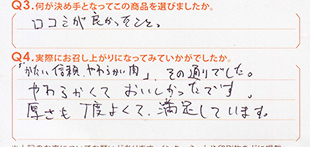 Q3.何が決め手となってこの商品を選びましたか。
口コミが良かったこと。
Q4.実際にお召し上がりになってみていかがでしたか。
「かたい信頼、やわらかい肉」、その通りでした。
やわらかくて おいしかったです。
厚さも 丁度よくて、満足しています。